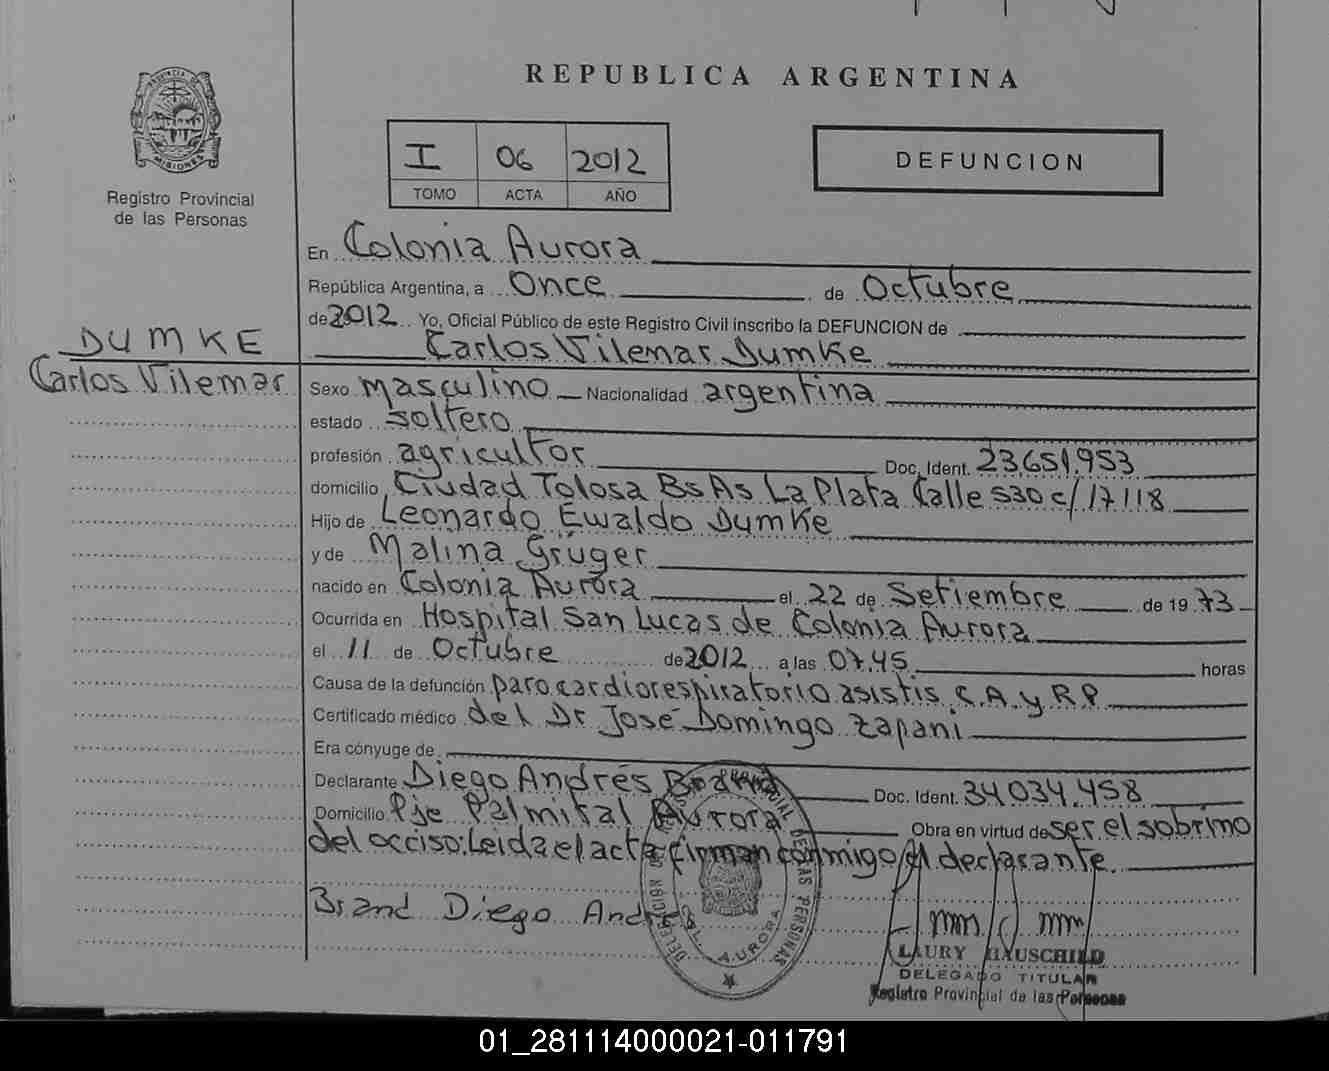 REPUBLICA ARGENTINA
PROVINCIA DE MISIONES
Registro Provincial
de las Personas
I 06 2012
TOMO ACTA AÑO
DEFUNCION
DUMKE
Carlos Vilemar
En Colonia Aurora
República Argentina, a Once de Octubre
de 2012 Yo, Oficial Público de este Registro Civil inscribo la DEFUNCION de
Carlos Vilemar Dumke
Sexo masculino Nacionalidad argentina
estado soltero
profesión agricultor Doc. Ident. 23.651.953
domicilio Ciudad Tolosa Bs As La Plata Calle 530 c/ 17 118
Hijo de Leonardo Ewaldo Dumke
y de Malina Grüger
nacido en Colonia Aurora el 22 de Setiembre de 1973
Ocurrida en Hospital San Lucas de Colonia Aurora
el 11 de Octubre de 2012 a las 07.45 horas
Causa de la defunción paro cardiorespiratorio asistis. C.A. y R.P.
Certificado médico del Dr José Domingo Zapani
Era cónyuge de
Declarante Diego Andrés Brand Doc. Ident. 34.034.458
Domicilio Pje Palmital Aurora Obra en virtud de ser el sobrino
del occiso: Leida el acta firman conmigo el declarante.
Brand Diego Andrés
DELEGACION PROVINCIAL DE LAS PERSONAS
COL. AURORA
LAURY HAUSCHILD
DELEGADO TITULAR
Registro Provincial de las Personas
01_281114000021-011791